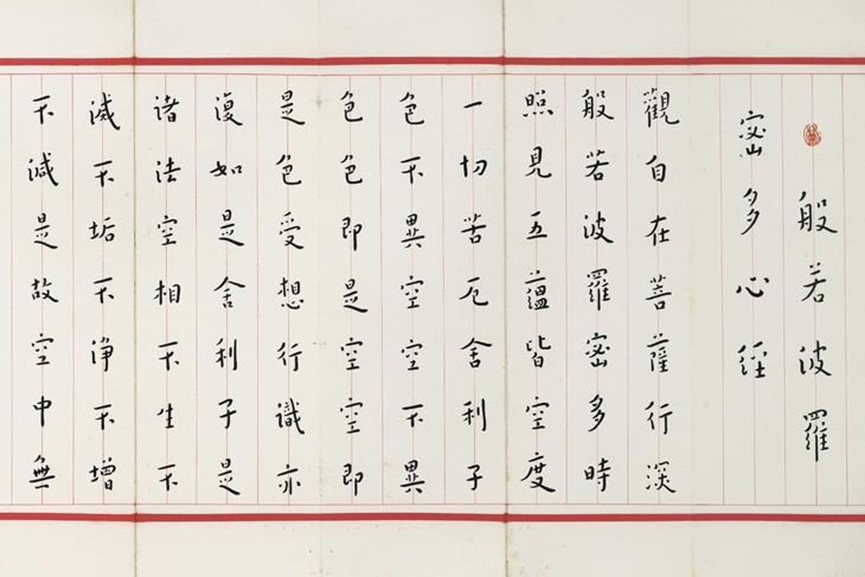 般若波羅
密多心經
觀自在菩薩行深
般若波羅密多時
照見五蘊皆空度
一切苦厄舍利子
色不異空空不異
色色即是空空即
是色受想行識亦
復如是舍利子是
諸法空相不生不
滅不垢不淨不增
不減是故空中無